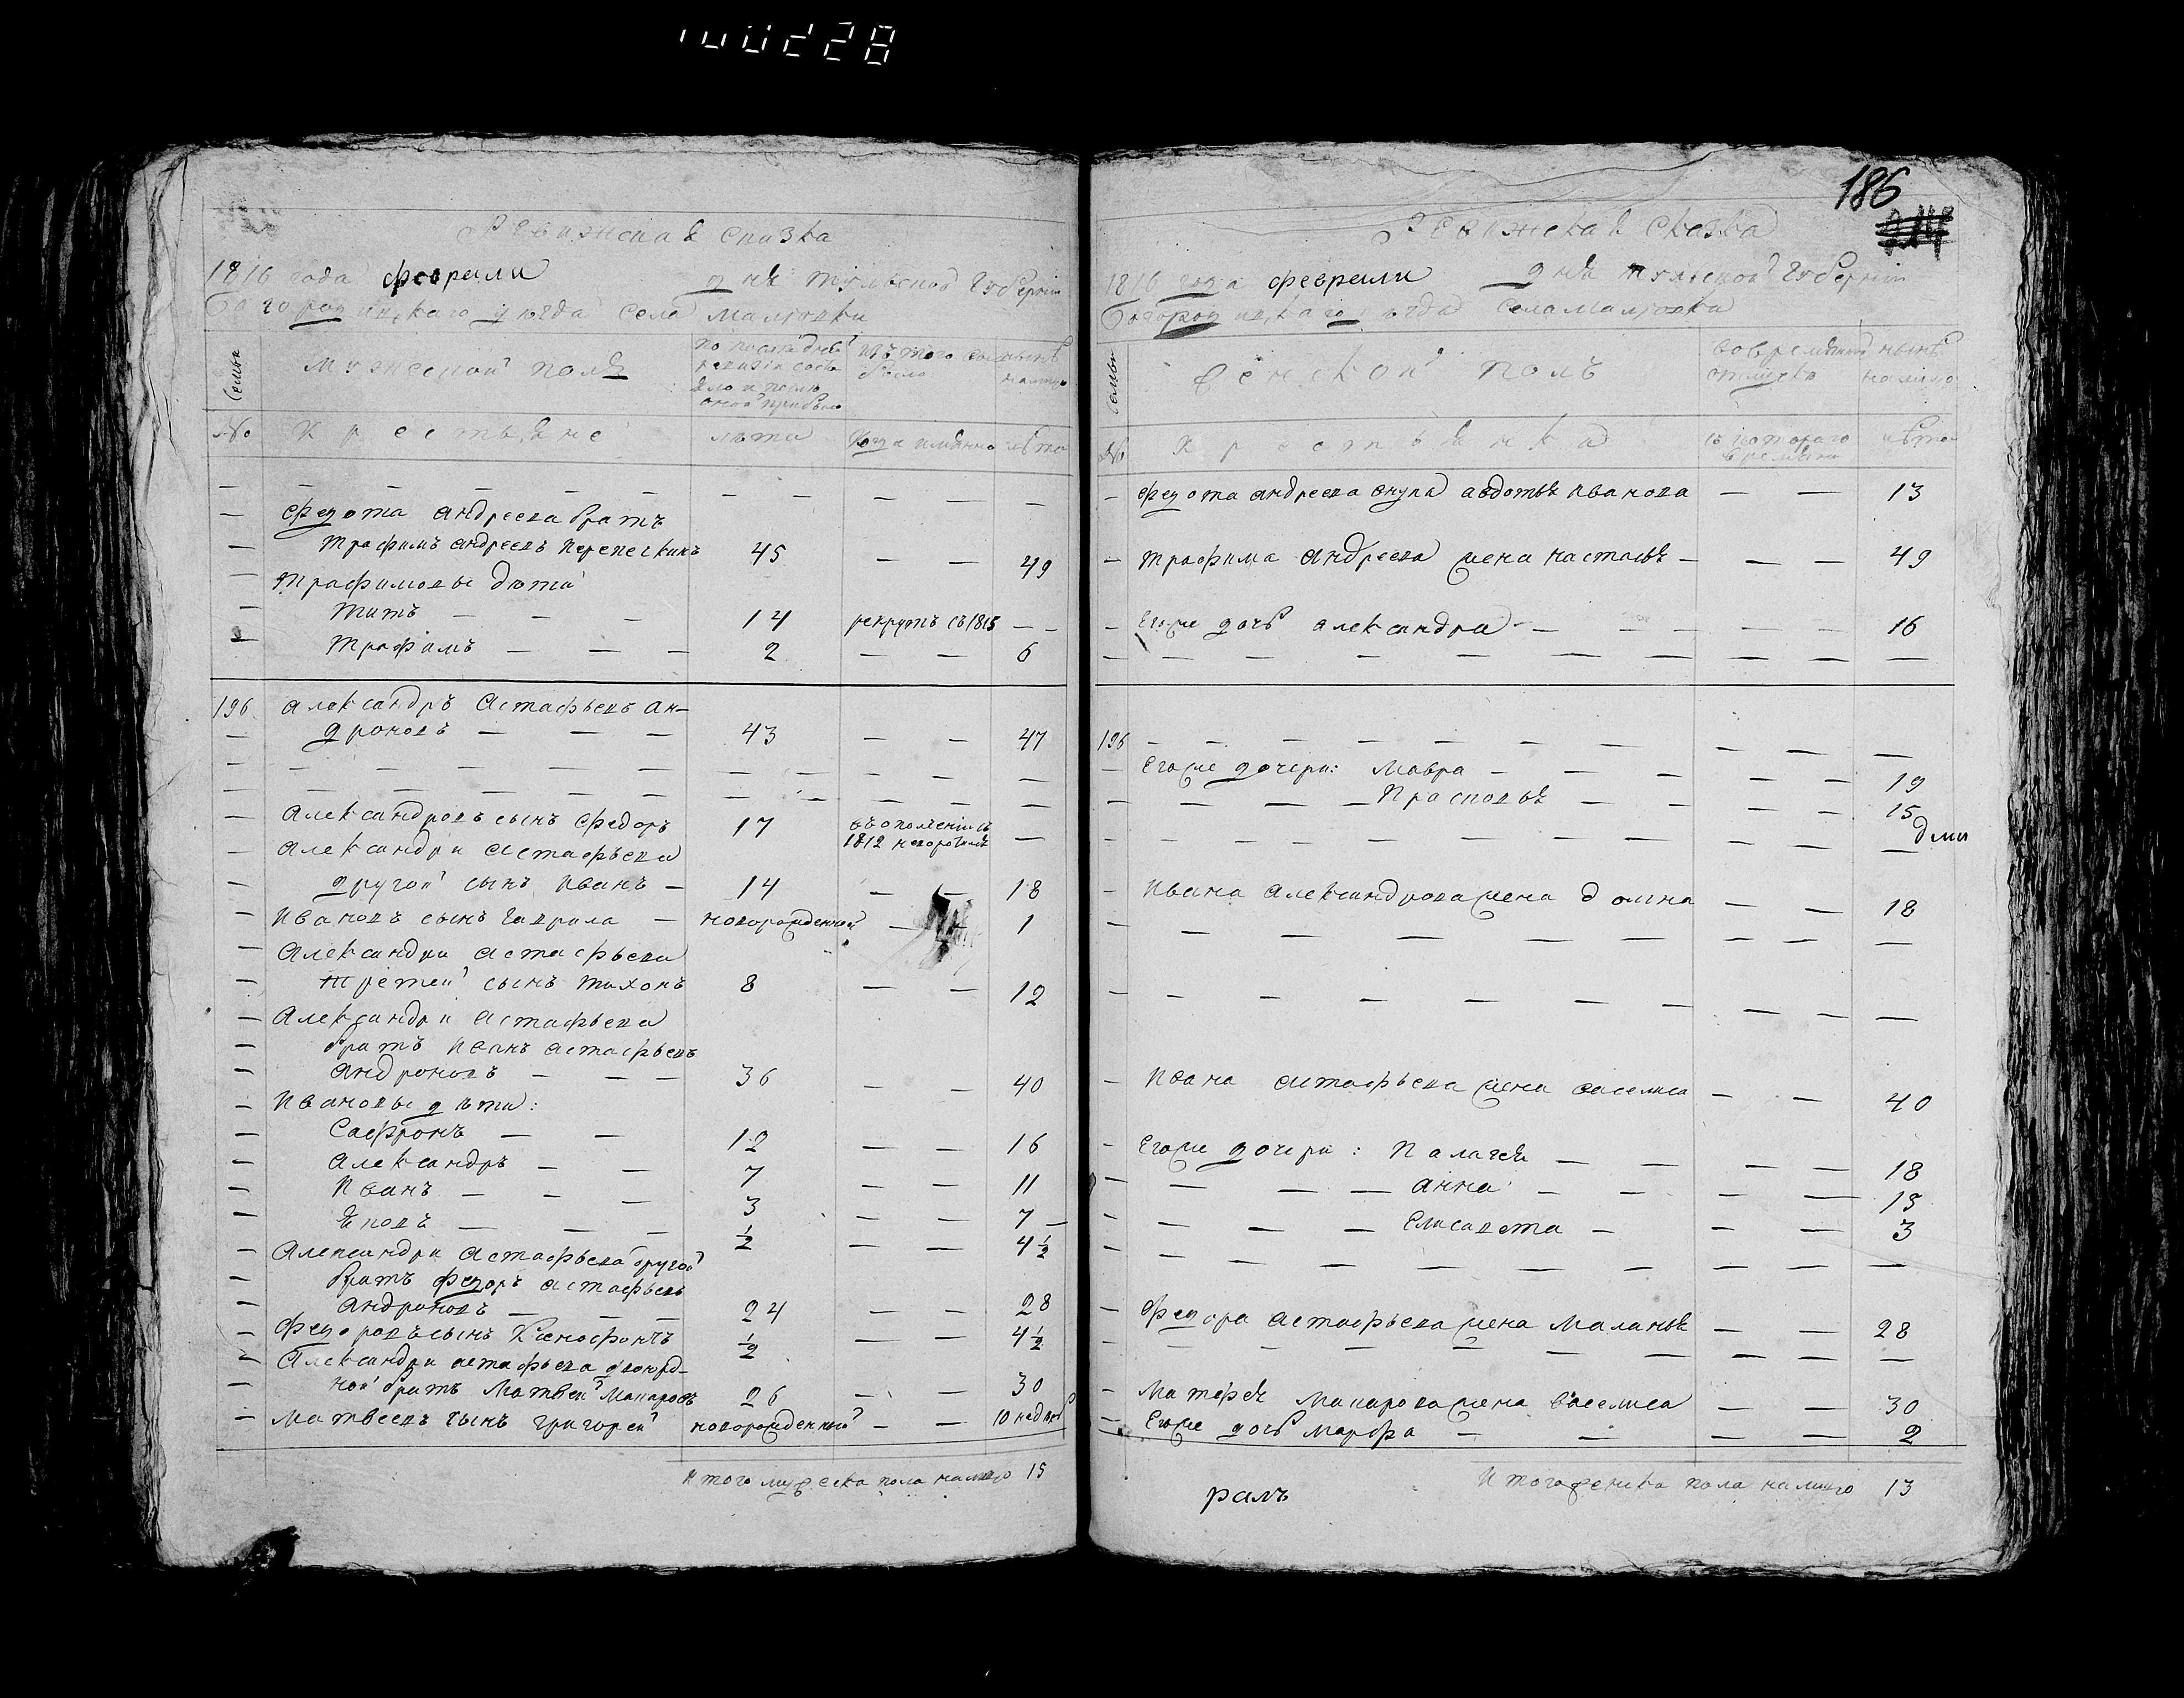 Ревижская сказка
1816 года февраля дня Тульской Губернiи
Богородицкаго уѣзда села Малiовки
Семьи
Мужескои полъ
по последней ревизiи состояло и после оной прибыло
изъ того выбыло
ныне налицо
№
Крестьяне
лѣта
Когда имянно
лѣта
Федота андреева братъ
Трафимъ андреевъ Перепелкинъ 45 — — 49
Трафимовы дѣти
Титъ — — — 14 рекрутъ съ 1815 — —
Трафимъ — — — 2 — — 6
196 Александръ Астафьевъ Ан-
дроновъ — — — 43 — — 47
Александровъ сынъ Федоръ 17 въ ополченiи съ 1812 невороtился —
Александра Астафьева
другой сынъ Иванъ — 14 — — 18
Ивановъ сынъ Гаврила — новорожденной — — 1
Александра Астафьева
третей сынъ Тихонъ 8 — — 12
Александра Астафьева
братъ Иванъ Астафьевъ
Андроновъ — — — 36 — — 40
Ивановы дѣти:
Сафронъ — — 12 — — 16
Александръ — — 7 — — 11
Иванъ — — — 3 — — 7
Яковъ — — — ½ — — 4½
Александра Астафьева другой
братъ Федоръ Астафьевъ
Андроновъ — — — 24 — — 28
Федоровъ сынъ Ксенофонтъ ½ — — 4½
Александра астафьева двоюрод-
ной братъ Матвей Макаровъ 26 — — 30
Матвеевъ сынъ Григорей новорожденный — — 10 недель
Итого мужеска пола налицо 15
186
Ревижская сказка
1816 года февраля дня Тульской Губернiи
Богородицкаго уѣзда села Малiовки
Семьи
Женской полъ
во временной отлучке
ныне налицо
№
Крестьянка
съ котораго времени
лѣта
— Федота андреева снуха авдотья Иванова — — 13
— Трафима Андреева жена настасья — — — 49
— Егоже дочь александра — — — — — 16
196 — — — — — — — — — —
— Егоже дочери: Мавра — — — — — 19
— — — — Прасковья — — — — 15
— Ивана Александрова жена домна — — 18
— Ивана астафьева жена василиса — — 40
— Егоже дочери: Палагея — — — — 18
— — — — анна — — — — 15
— — — — Елисавета — — — 3
— Федора Астафьева жена Маланья — — 28
— Матфея Макарова жена василиса — — 30
— Егоже дочь Марфа — — — — 2
Итого женска пола налицо 13
ралъ